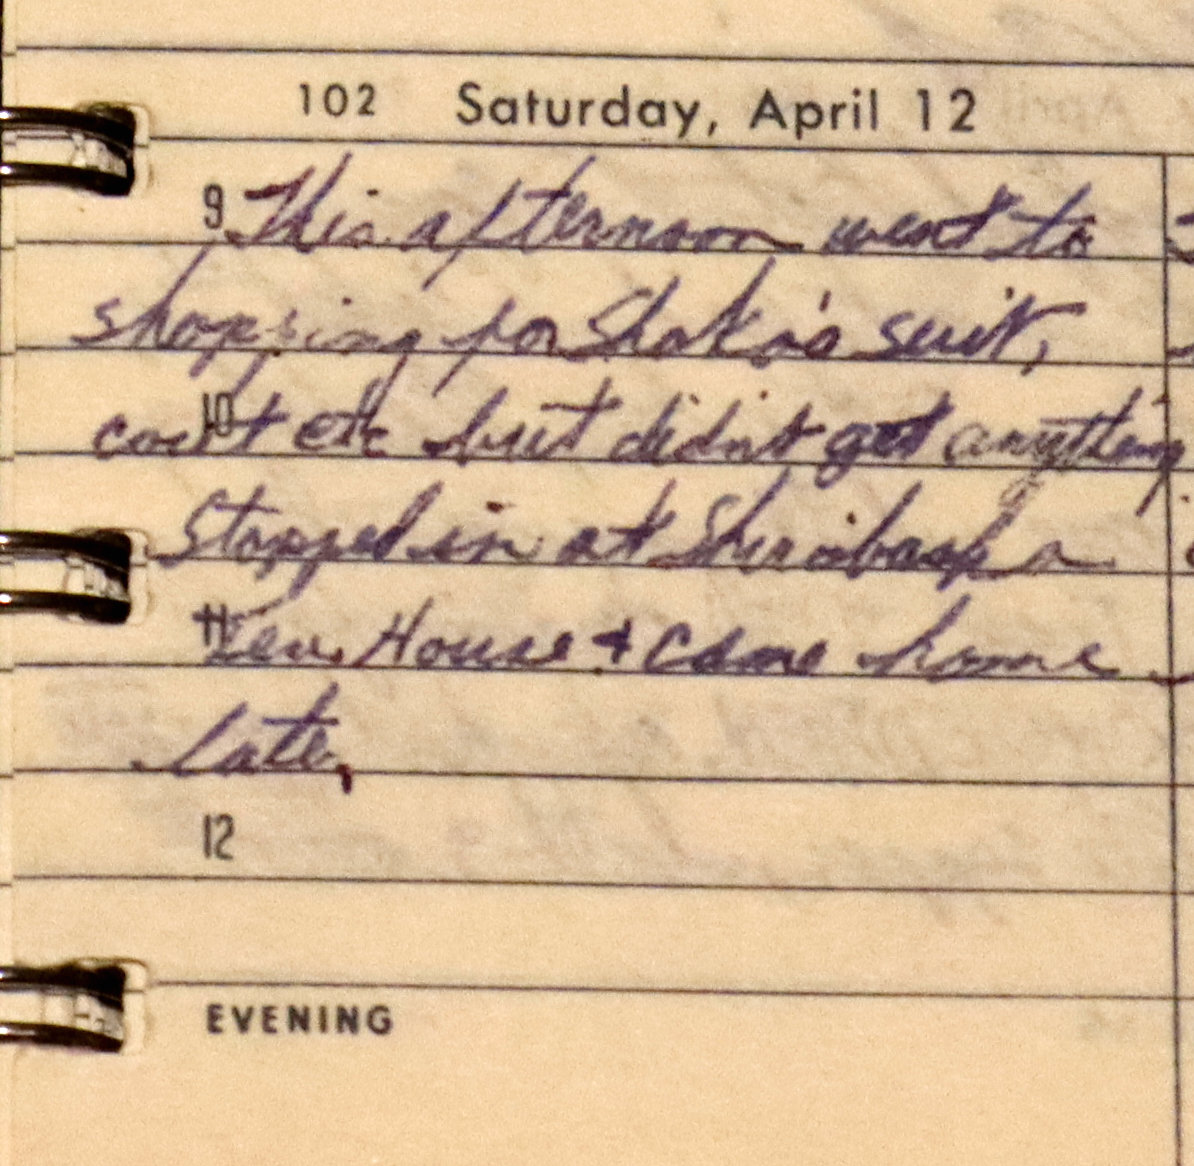 102 Saturday, April 12
9 This afternoon went to
shopping for Shoko's suit,
10 coat etc but didn't get anything
Stopped in at Shiraibashi
11 House & came home
late,
12
EVENING